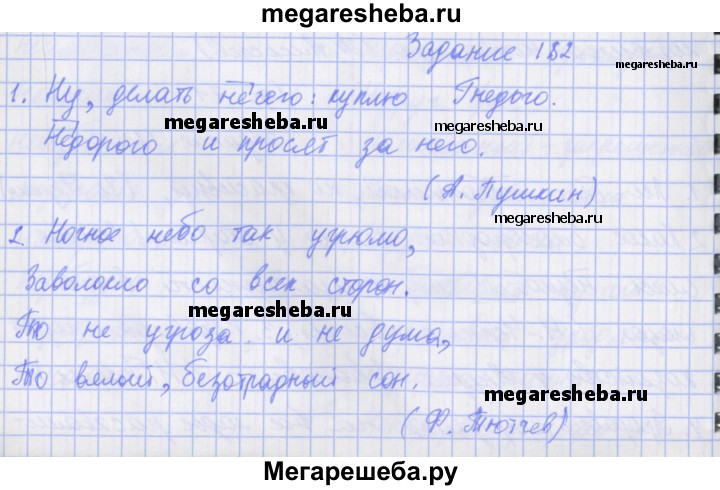 megaresheba.ru
Задание 182
megaresheba.ru
1. Ну, делать нечего: куплю Гнедого.
megaresheba.ru
megaresheba.ru
Недорого и просят за него.
(А. Пушкин)
megaresheba.ru
2. Ночное небо так угрюмо,
Заволокло со всех сторон.
megaresheba.ru
То не угроза и не дума,
То вялый, безотрадный сон.
megaresheba.ru
(Ф. Тютчев)
Мегарешеба.ру